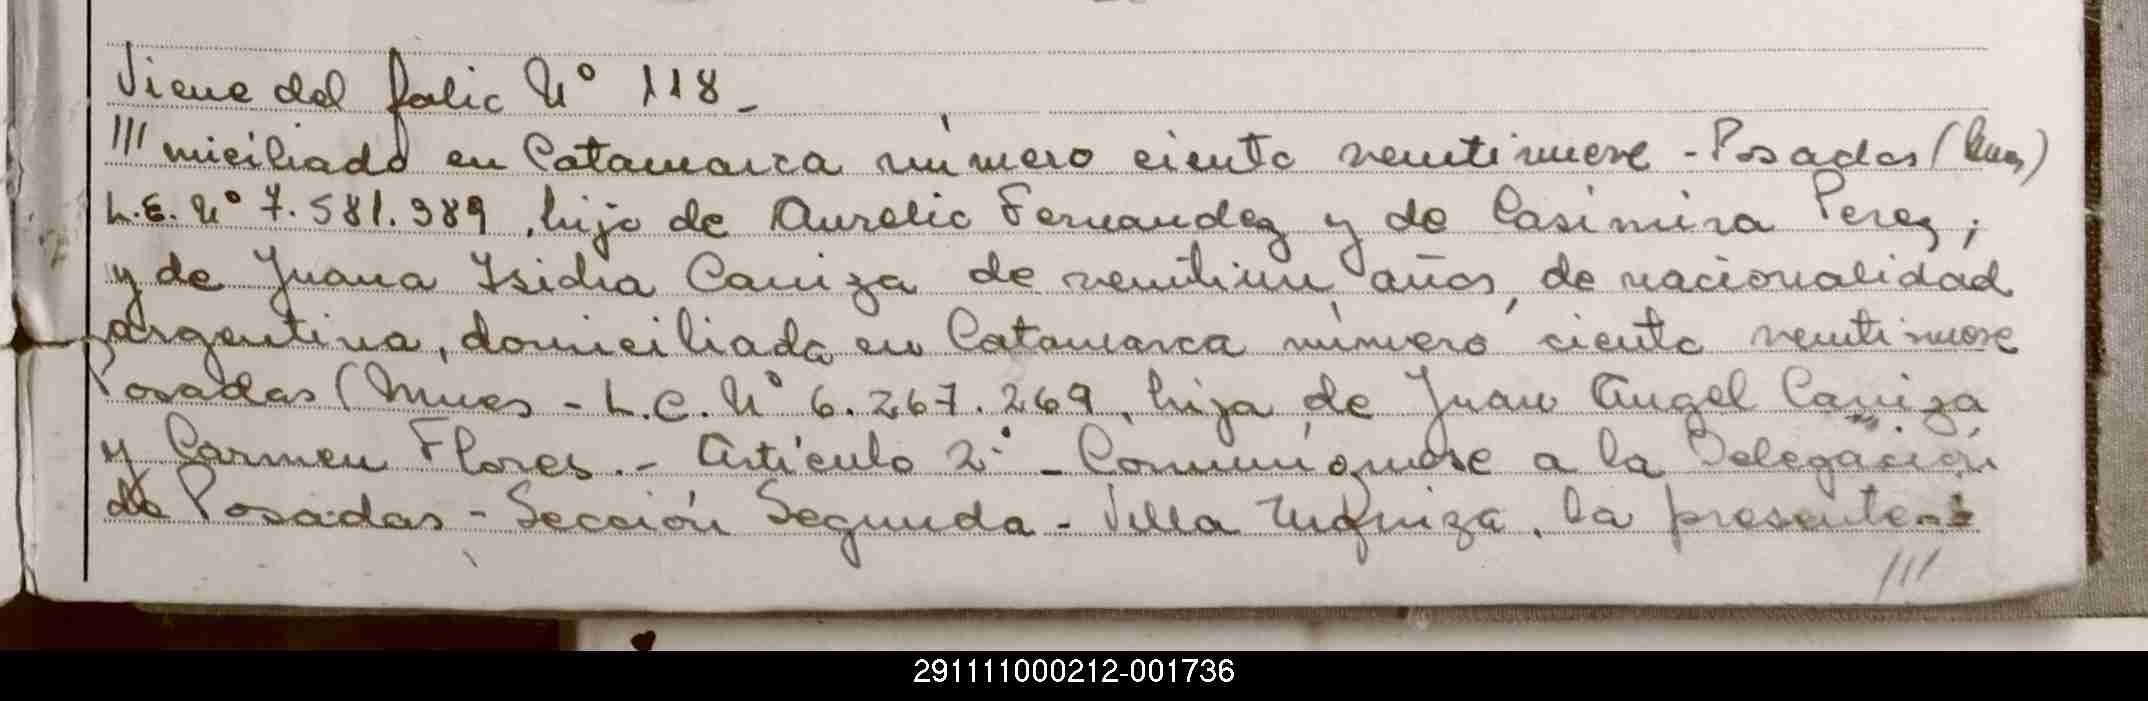 Viene del folio Nº 118_
/// miciliado en Catamarca número ciento veintinueve - Posadas (Mnes)
L.E. Nº 7.581.989, hijo de Aurelio Fernandez y de Casimira Perez;
y de Juana Isidra Caniza de veintiun años, de nacionalidad
argentina, domiciliada en Catamarca número ciento veintinueve
Posadas (Mnes - L.C. Nº 6.267.269, hija de Juan Angel Caniza
y Carmen Flores.- Artículo 2º - Comuníquese a la Delegación
de Posadas - Sección Segunda - Villa Urquiza, la presente.
///
291111000212-001736